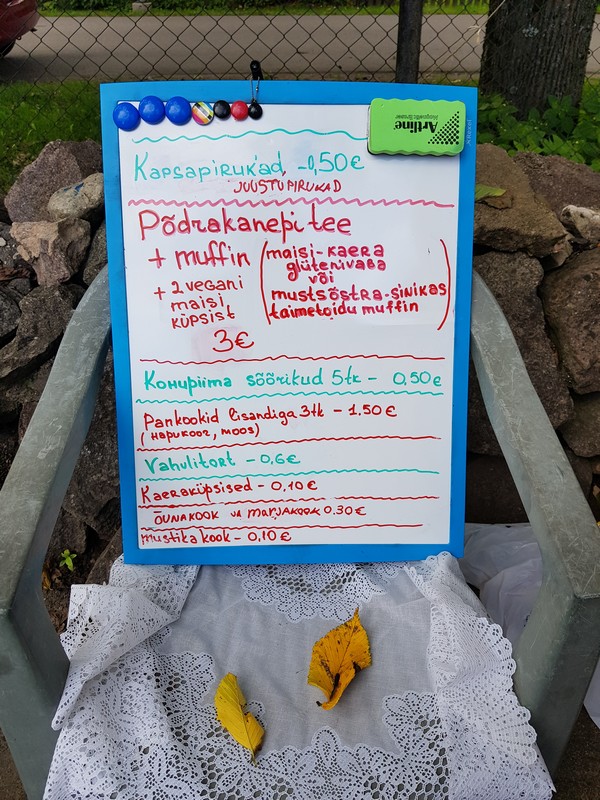 Artline
Kapsapirukad -0,50€
JUUSTUPIRUKAD
Põdrakanepi tee
+ muffin (maisi-kaera
glütenivaba
või
mustsõstra-sinikas
taimetoidu muffin)
+ 2 vegani
maisi
küpsist
3€
Kohupiima sõõrikud 5tk - 0,50€
Pankookid lisandiga 3tk - 1.50€
(Hapukoor, moos)
Vahulitort - 0,6€
Kaeraküpsised - 0,10€
Õunakook ja marjakook 0.30€
mustika kook - 0,10€